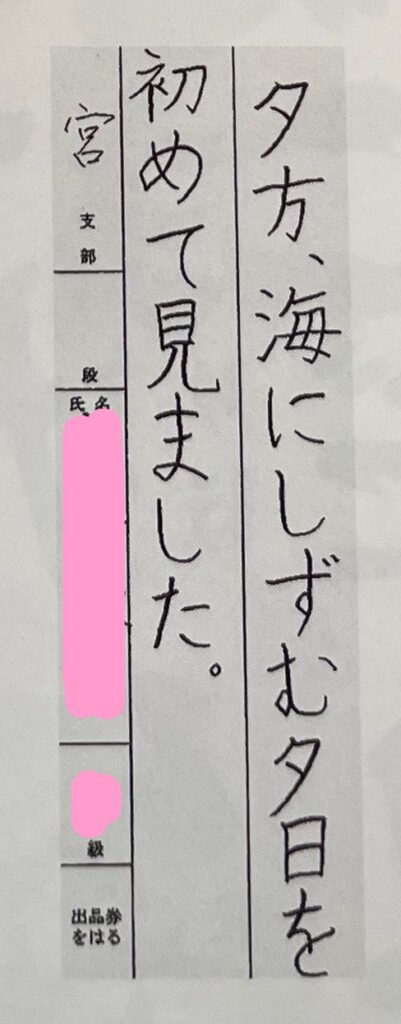 夕方、海にしずむ夕日を
初めて見ました。
宮
支部
段
氏名
級
出品券
をはる